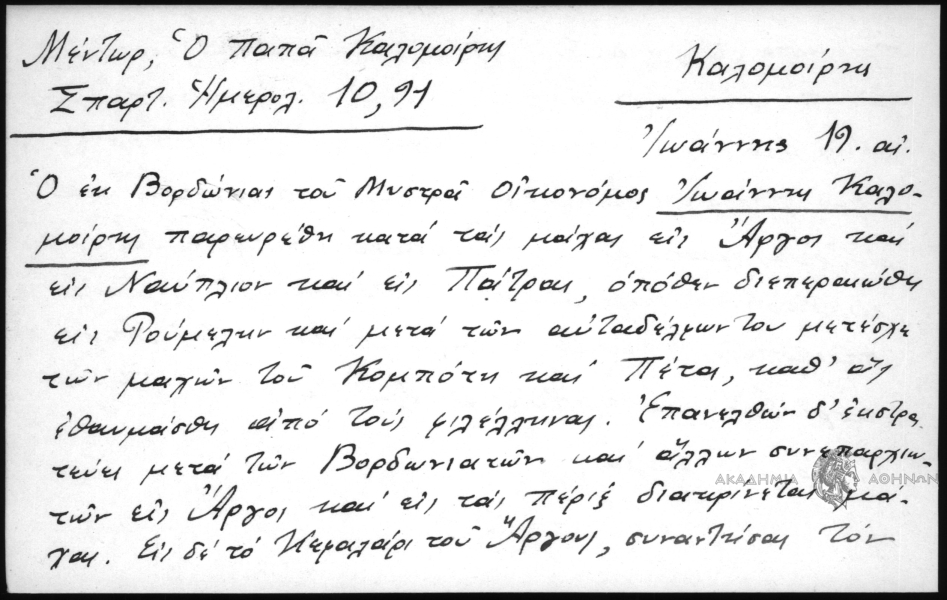 Μέντωρ, Ὁ παπᾶ Καλομοίρης
Σπαρτ. Ἡμερολ. 10, 91
Καλομοίρης
Ἰωάννης 19. αἰ.
Ὁ ἐκ Βορδώνιας τοῦ Μυστρᾶ Οἰκονόμος Ἰωάννης Καλο-
μοίρης παρευρέθη κατά τάς μάχας εἰς Ἄργος καί
εἰς Ναύπλιον καί εἰς Πάτρας, ὁπόθεν διεπεραιώθη
εἰς Ρούμελην καί μετά τῶν αὐταδέλφων του μετέσχε
τῶν μαχῶν τοῦ Κομπότη καί Πέτα, καθ' ἅς
ἐθαυμάσθη ἀπό τούς φιλέλληνας. Ἐπανελθών δ' ἐκστρα
τεύει μετά τῶν Βορδωνιατῶν καί ἄλλων συνεπαρχιω-
τῶν εἰς Ἄργος καί εἰς τάς πέριξ διακρίνεται μά-
χας. Εἰς δέ τό Κεφαλάρι τοῦ Ἄργους, συναντήσας τόν
ΑΚΑΔΗΜΙΑ ΑΘΗΝΩΝ